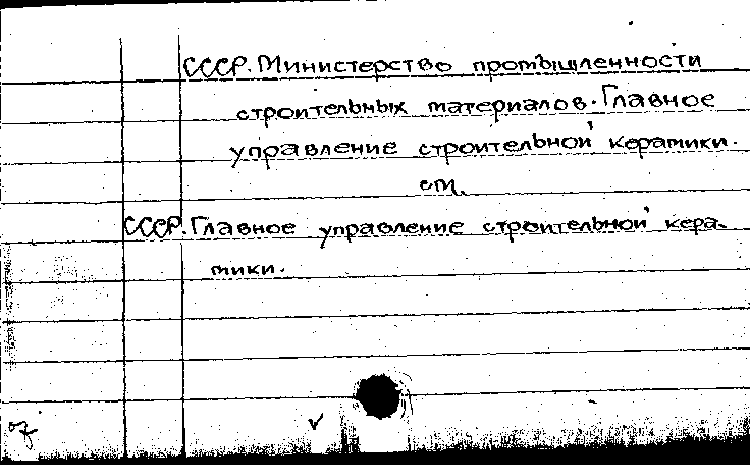 СССР. Министерство промышленности
строительных материалов. Главное
управление строительной керамики.
см.
СССР. Главное управление строительной кера-
мики.